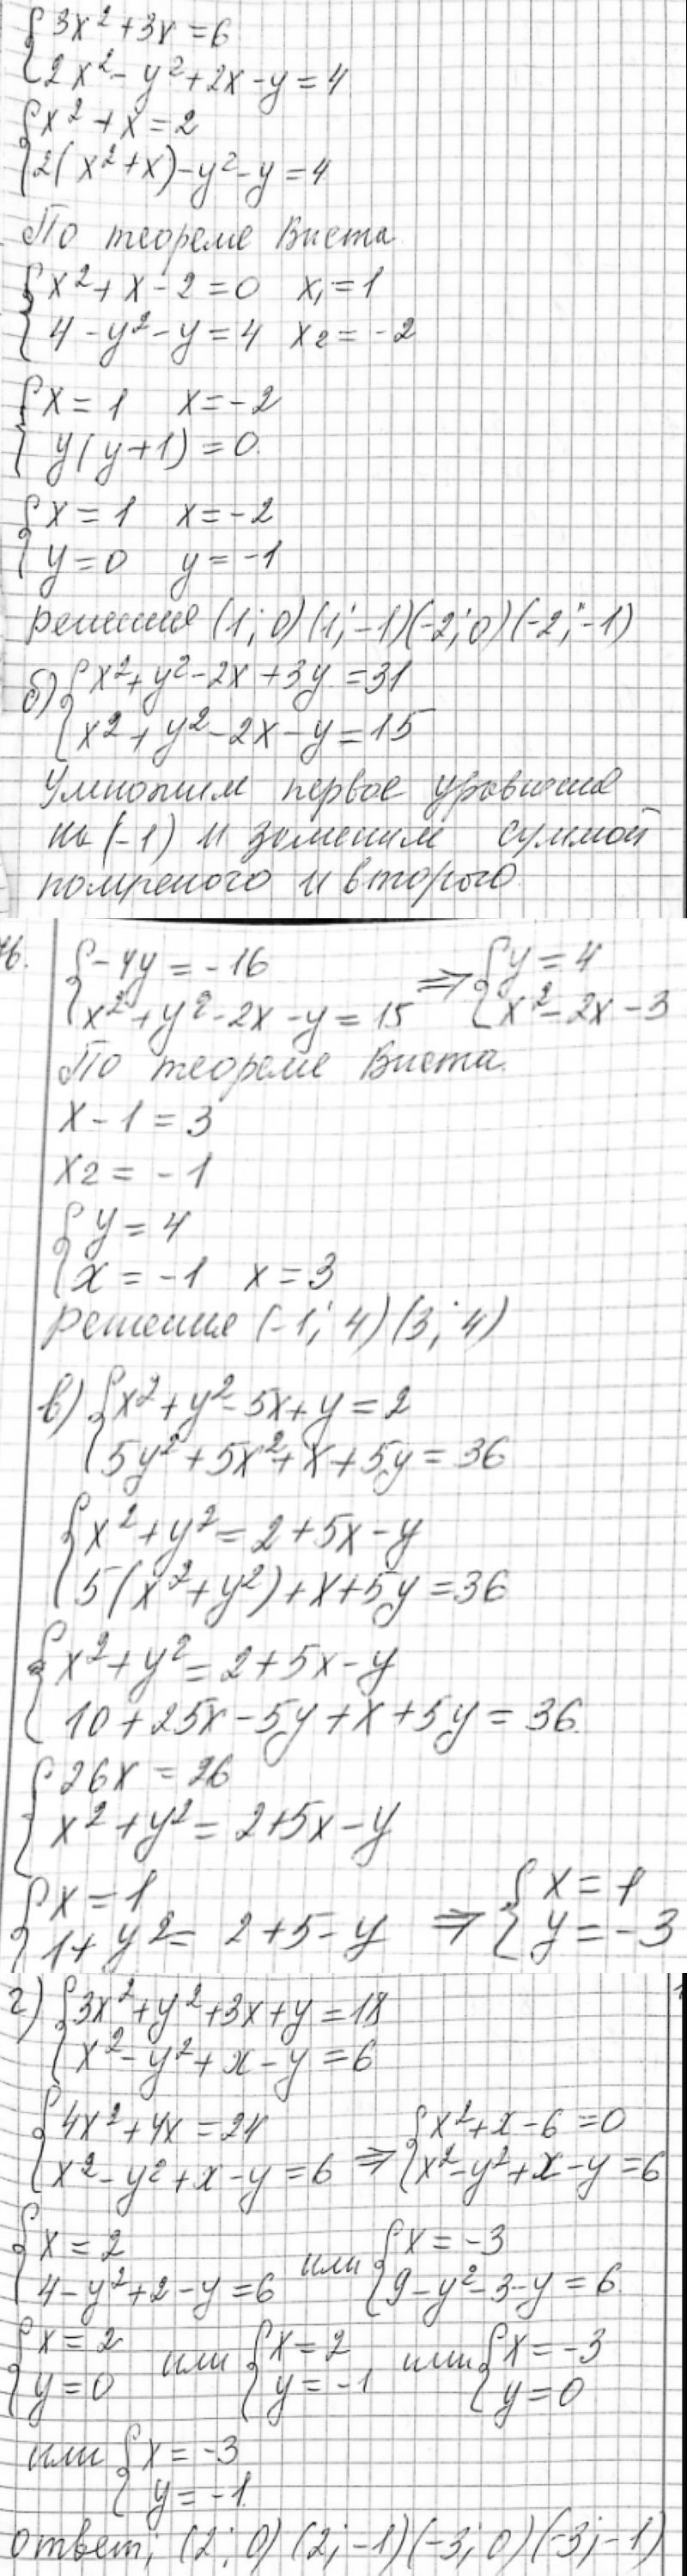 {3x² + 3x = 6
{2x² - y² + 2x - y = 4
{x² + x = 2
{2(x² + x) - y² - y = 4
По теореме Виета
{x² + x - 2 = 0 x₁ = 1
{4 - y² - y = 4 x₂ = -2
{x = 1 x = -2
{y(y + 1) = 0.
{x = 1 x = -2
{y = 0 y = -1
решения (1; 0) (1; -1) (-2; 0) (-2; -1)
б) {x² + y² - 2x + 3y = 31
{x² + y² - 2x - y = 15
Умножим первое уравнение
на (-1) и заменим суммой
и второго.
{-4y = -16 ⇒ {y = 4
{x² + y² - 2x - y = 15 {x² - 2x - 3
По теореме Виета.
x - 1 = 3
x2 = -1
{y = 4
{x = -1 x = 3
решения (-1; 4) (3; 4)
в) {x² + y² - 5x + y = 2
{5y² + 5x² + x + 5y = 36
{x² + y² = 2 + 5x - y
{5(x² + y²) + x + 5y = 36
{x² + y² = 2 + 5x - y
{10 + 25x - 5y + x + 5y = 36.
{26x = 26
{x² + y² = 2 + 5x - y
{x = 1 ⇒ {x = 1
{1 + y² = 2 + 5 - y {y = -3
г) {3x² + y² + 3x + y = 18
{x² - y² + x - y = 6
{4x² + 4x = 24 ⇒ {x² + x - 6 = 0
{x² - y² + x - y = 6 {x² - y² + x - y = 6
{x = 2 или {x = -3
{4 - y² + 2 - y = 6 {9 - y² - 3 - y = 6.
{x = 2 или {x = 2 или {x = -3
{y = 0 {y = -1 {y = 0
или {x = -3
{y = -1.
ответ; (2; 0) (2; -1) (-3; 0) (-3; -1)